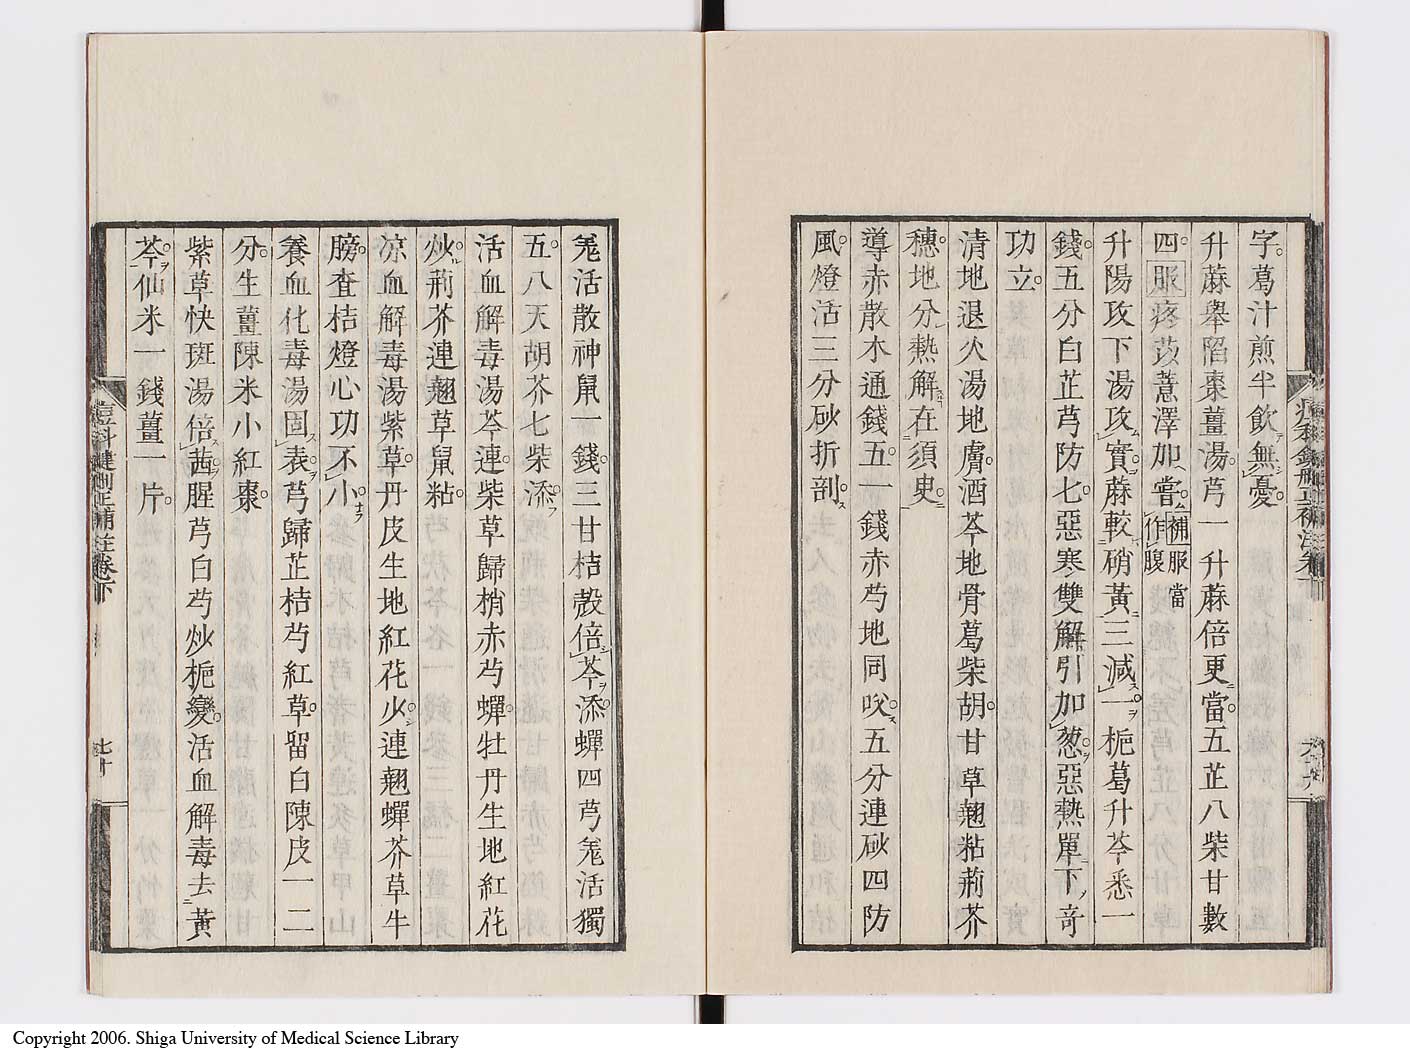 字葛汁煎半飲無憂
升蔴舉陷棗薑湯芎一升蔴倍更當五芷八柴甘數
四服疼苡薏澤加嘗補服當作腹
升陽攻下湯攻實蔴較硝黃三減一梔葛升芩悉一
錢五分白芷芎防七惡寒雙解引加葱惡熱單下竒
功立
清地退火湯地膚酒芩地骨葛柴胡甘草翹粘荊芥
穗地分熱解在須臾
導赤散木通錢五一錢赤芍地同㕮五分連砂四防
風燈活三分砂折剖
羗活散神鼠一錢三甘桔殼倍芩添蟬四芎羗活獨
五八天胡芥七柴添
活血解毒湯芩連柴草歸梢赤芍蟬牡丹生地紅花
炒荊芥連翹草鼠粘
凉血解毒湯紫草丹皮生地紅花火連翹蟬芥草牛
膀查桔燈心功不小
養血化毒湯固表芎歸芷桔芍紅草留白陳皮一二
分生薑陳米小紅棗
紫草快斑湯倍茜腥芎白芍炒梔變活血解毒去黃
芩仙米一錢薑一片
痘科鍵刪正補註卷下
七十
Copyright 2006. Shiga University of Medical Science Library